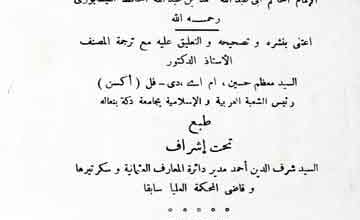 الإمام الحاكم أبى عبد الله محمد بن عبد الله الحافظ النيسابورى
رحمـــه الله
اعتنى بنشره و تصحيحه و التعليق عليه مع ترجمة المصنف
الأستاذ الدكتور
السيد معظم حسين، ام اے، دى - فل ( أكسن )
رئيس الشعبة العربية و الإسلامية بجامعة دكة بنغاله
طبع
تحت إشراف
السيد شرف الدين أحمد مدير دائرة المعارف العثمانية و سكرتيرها
و قاضى المحكمة العليا سابقا